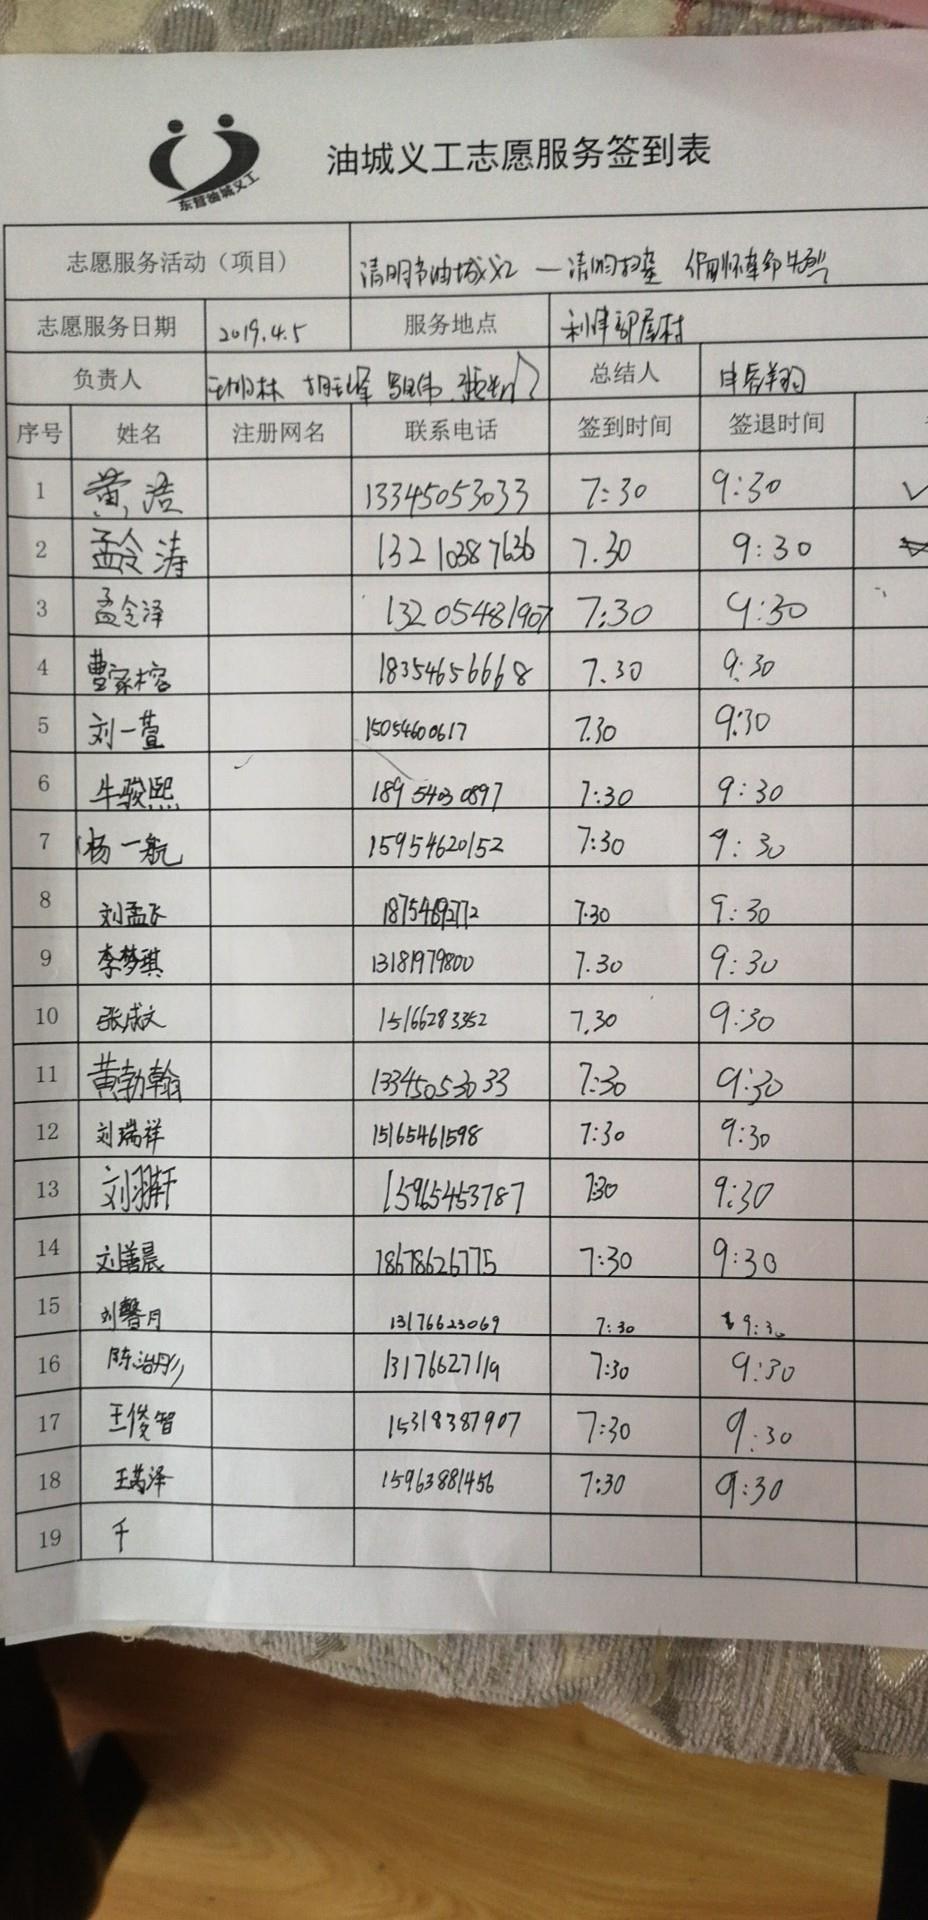 东营油城义工
油城义工志愿服务签到表
志愿服务活动（项目） 清明节油城义工 — 清明扫墓 缅怀革命先烈
志愿服务日期 2019.4.5 服务地点 利津
负责人 总结人
序号 姓名 注册网名 联系电话 签到时间 签退时间
1 黄浩 13345053033 7:30 9:30 ✓
2 孟令涛 13210387636 7.30 9:30
3 孟令泽 13205481907 7:30 9:30
4 曹家榕 18354656668 7.30 9:30
5 刘一萱 15054600617 7.30 9:30
6 牛骏熙 18954030897 7:30 9:30
7 杨一航 15954620152 7:30 9:30
8 刘孟飞 7.30 9:30
9 李梦琪 13181979800 7.30 9:30
10 张成文 15166283352 7.30 9:30
11 黄勃翰 13345053033 7:30 9:30
12 刘瑞祥 15165461598 7:30 9:30
13 刘翔轩 15965453787 7:30 9:30
14 刘善晨 18678626775 7:30 9:30
15 刘馨月 13176623069 7:30 9:30
16 陈治彤 13176627119 7:30 9:30
17 王俊智 15318387907 7:30 9:30
18 15963881456 7:30 9:30
19